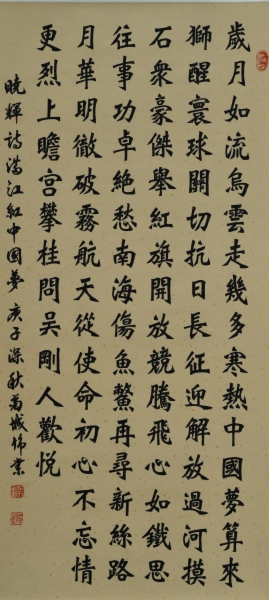 歲月如流烏雲走幾多寒熱中國夢算來
獅醒寰球關切抗日長征迎解放過河摸
石衆豪傑舉紅旗開放競騰飛心如鐵思
往事功卓絶愁南海傷魚鱉再尋新絲路
月華明徹破霧航天從使命初心不忘情
更烈上瞻宮攀桂問吴剛人歡悦
曉輝詩滿江紅中國夢庚子深秋